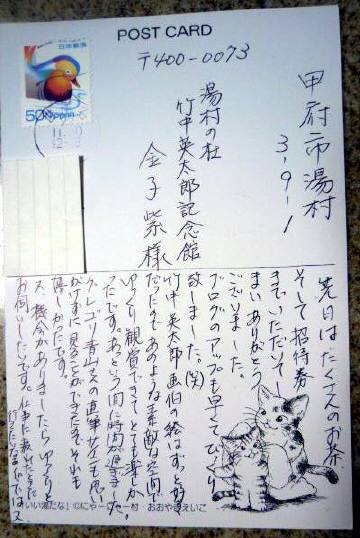 POST CARD
日本郵便
50 NIPPON
〒400-0073
甲府市湯村
3-9-1
湯村の杜
竹中英太郎記念館
金子紫様
先日はたくさんのお茶、
そして招待券
まいありがとう
ございました。
ブログのアップも早くてびっくり
致しました。(笑)
竹中英太郎画伯の絵はずっと好
だったのであのような素敵な空間で
ゆっくり観賞できてとても楽しか
ったです。あっという間に時間が過ぎました。
グレゴリ青山さんの直筆サインも思い
がけずに見ることができたそれも
嬉しかったです。
又、機会がありましたらゆっくりと
お伺いしたいです。仕事に疲れたら
いい湯だな! ©にゃーにゃー村 おおやぎえいこ